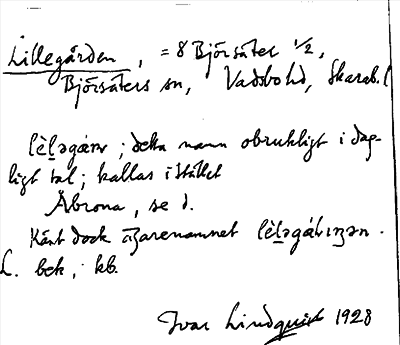 Lillegården, = 8 Björsäter 1/2,
Björsäters sn, Vadsbo hd, Skarab. l
lèḷəgáɹn ; detta namn obrukligt i dag-
ligt tal; kallas i stället
Åbrona, se d.
Känt dock ägarenamnet
L. bek, kb.
Ivar Lindquist 1928